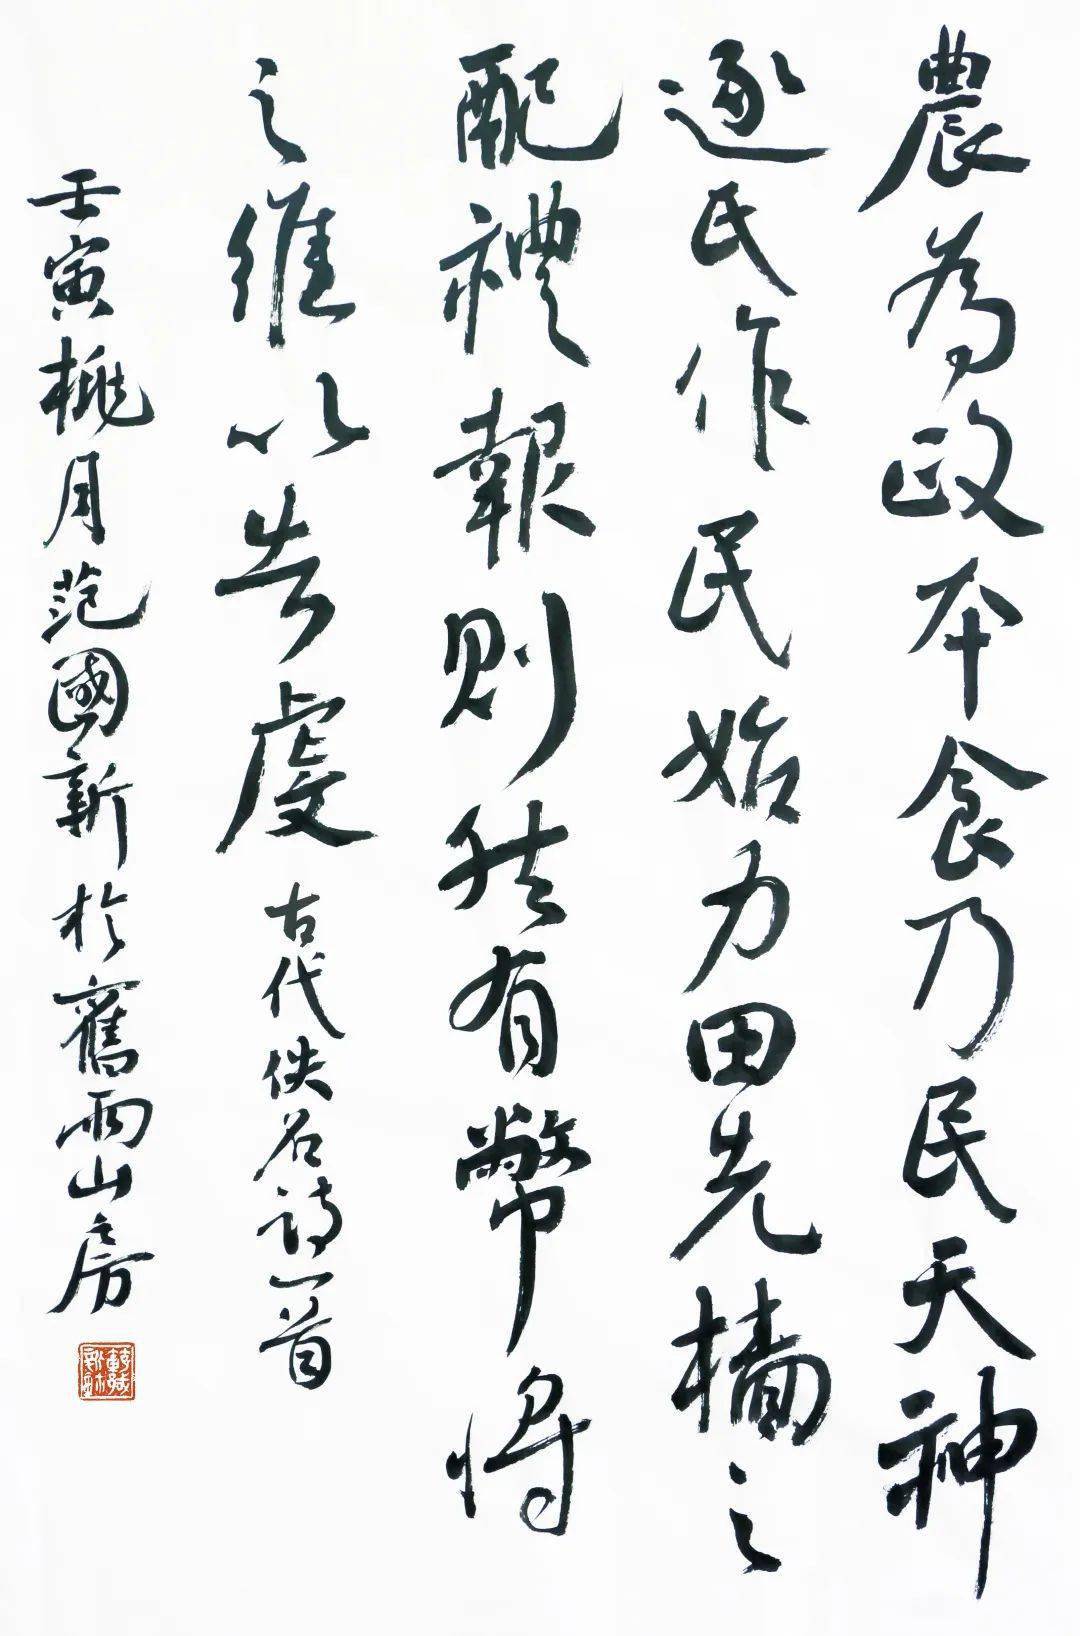 農為政本食乃民天神
逐氏作民始力田先穡之
配禮報則然有幣將
之維以告虔 古代佚名詩一首
壬寅桃月范國新於舊雨山房